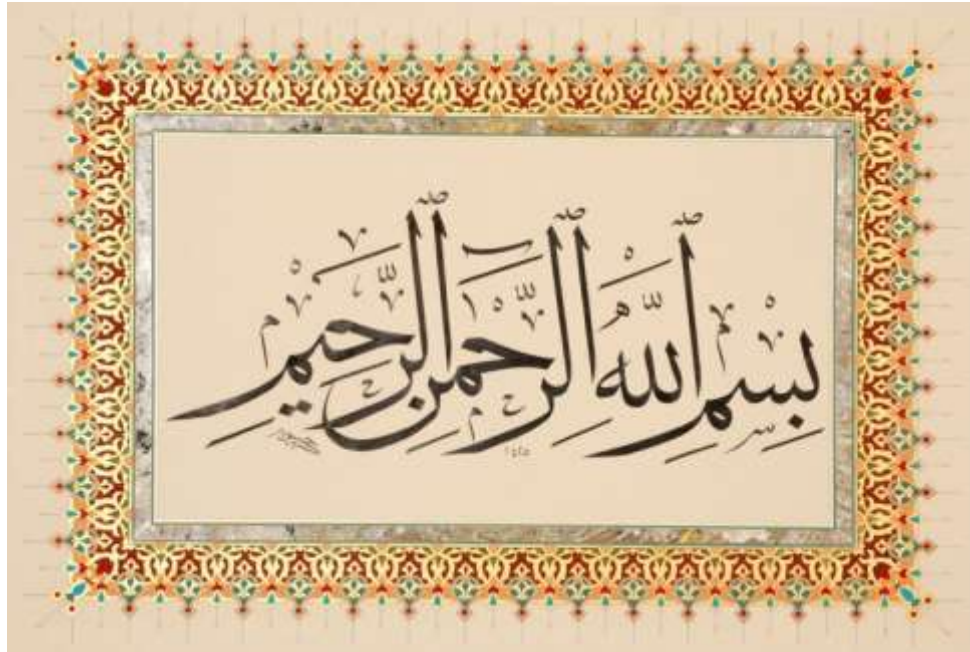 بِسْمِ اللّٰهِ الرَّحْمٰنِ الرَّحِيمِ
١٤٢٥